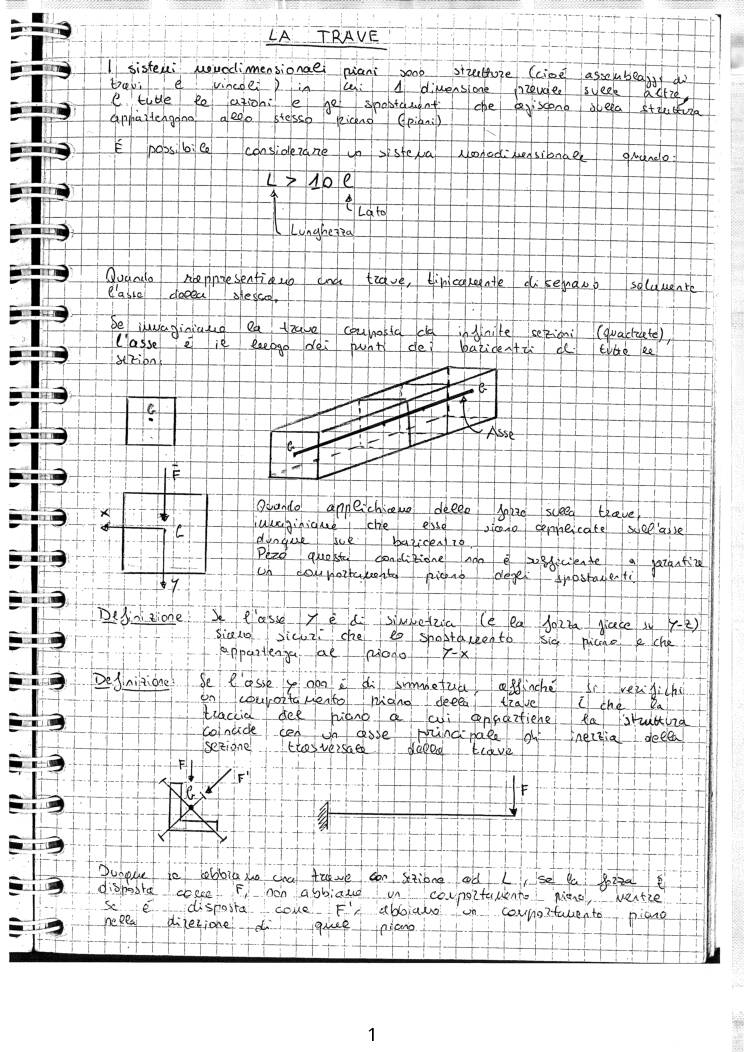 LA TRAVE
I sistemi monodimensionali piani sono strutture (cioé assemblaggi di
travi e vincoli) in cui 1 dimensione prevale sulle altre,
e tutte le azioni e gli spostamenti che agiscono sulla struttura
appartengono allo stesso piano (piani)
É possibile considerare un sistema monodimensionale quando:
L > 10 l
Lato
Lunghezza
Quando rappresentiamo una trave, tipicamente disegnano solamente
l'asse della stessa.
Se immaginiamo la trave composta da infinite sezioni (quadrate),
l'asse é il luogo dei punti dei baricentri di tutte le
sezioni
G
G
G
Asse
F
X
G
Y
Quando applichiamo delle forze sulla trave,
immaginiamo che esse siano applicate sull'asse
dunque sul baricentro
Però questa condizione non é sufficiente a garantire
un comportamento piano degli spostamenti.
Definizione: Se l'asse Y é di simmetria (e la forza giace su Y-Z)
siamo sicuri che lo spostamento sia piano e che
appartenga al piano Y-X
Definizione: Se l'asse y non é di simmetria, affinché si verifichi
un comportamento piano della trave é che la
traccia del piano a cui appartiene la struttura
coincide con un asse principale di inerzia della
sezione trasversale della trave
F
F'
G
F
Dunque se abbiamo una trave con sezione ad L, se la forza é
disposta come F, non abbiamo un comportamento piano, mentre
se é disposta come F', abbiamo un comportamento piano
nella direzione di quel piano
1